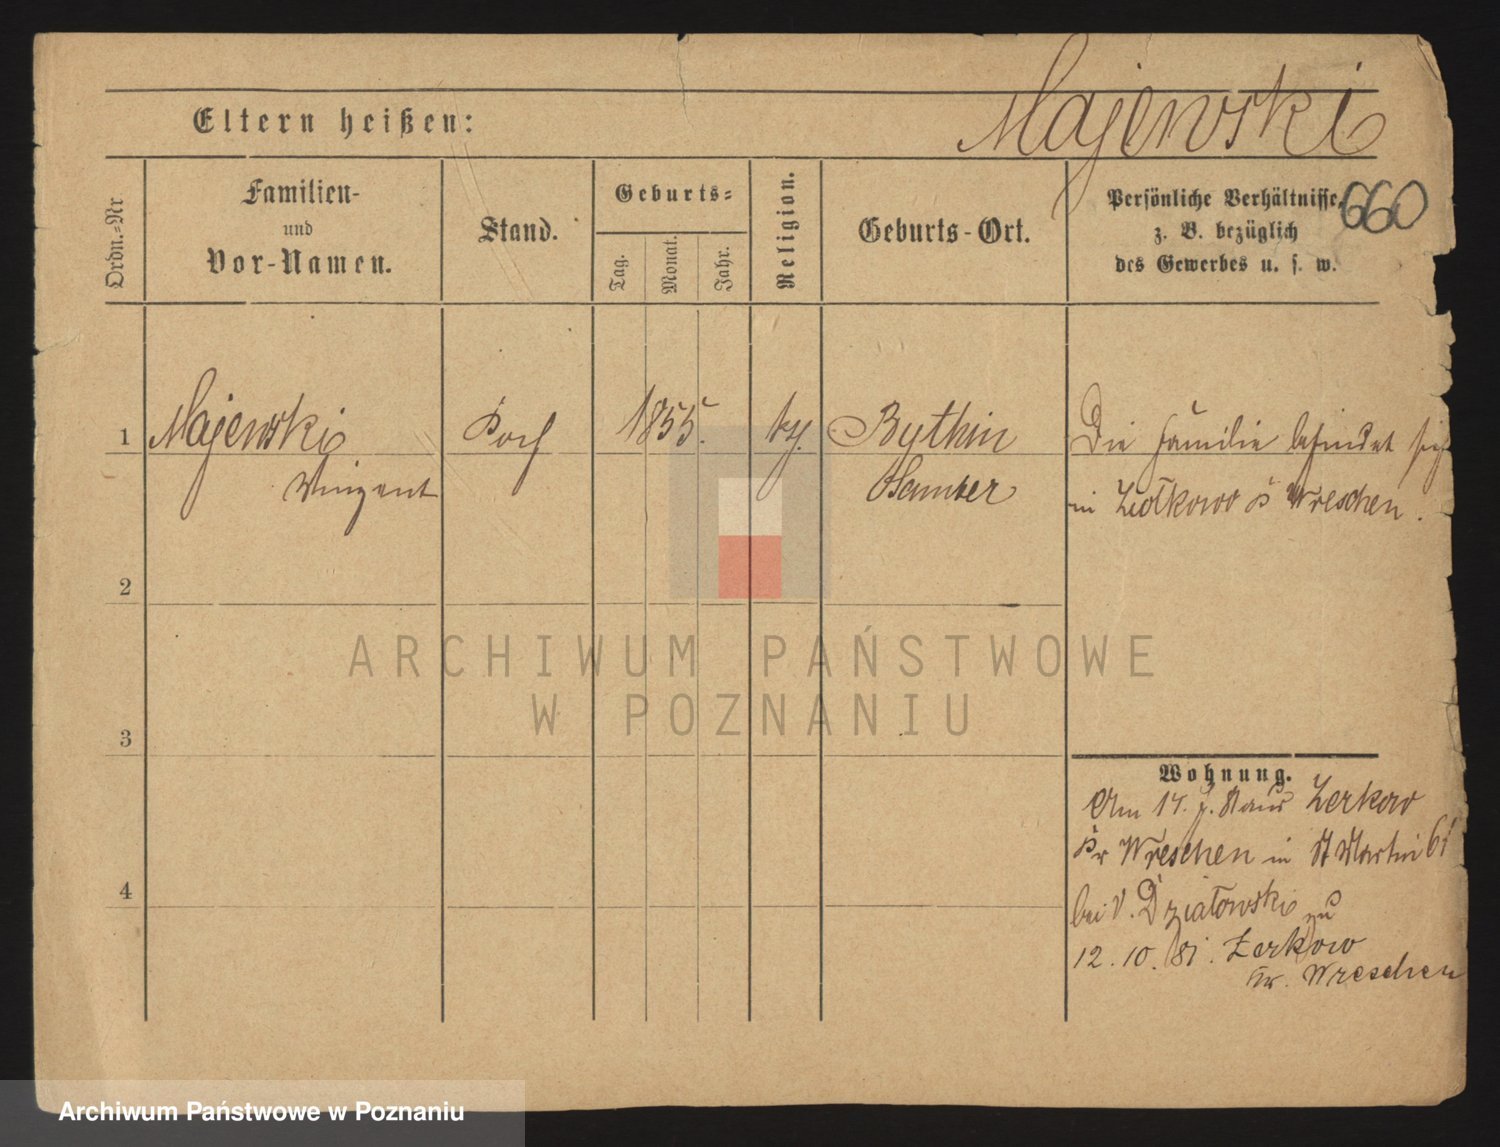 Majewski
Eltern heißen:
660
Ordn.-Nr
Familien-
und
Vor-Namen.
Stand.
Geburts-
Tag.
Monat.
Jahr.
Religion.
Geburts-Ort.
Persönliche Verhältnisse,
z. B. bezüglich
des Gewerbes u. s. w.
1
Majewski
Vinzent
Koch
1855.
Bythin
Samter
Die Familie befindet sich
in Wreschen.
2
3
4
Wohnung.
Am 14. aus Zerkow
Kr Wreschen in St Martin 61
bei V. Działowski
zu
12.10.81. Zerkow
Kr. Wreschen
ARCHIWUM PAŃSTWOWE
W POZNANIU
Archiwum Państwowe w Poznaniu